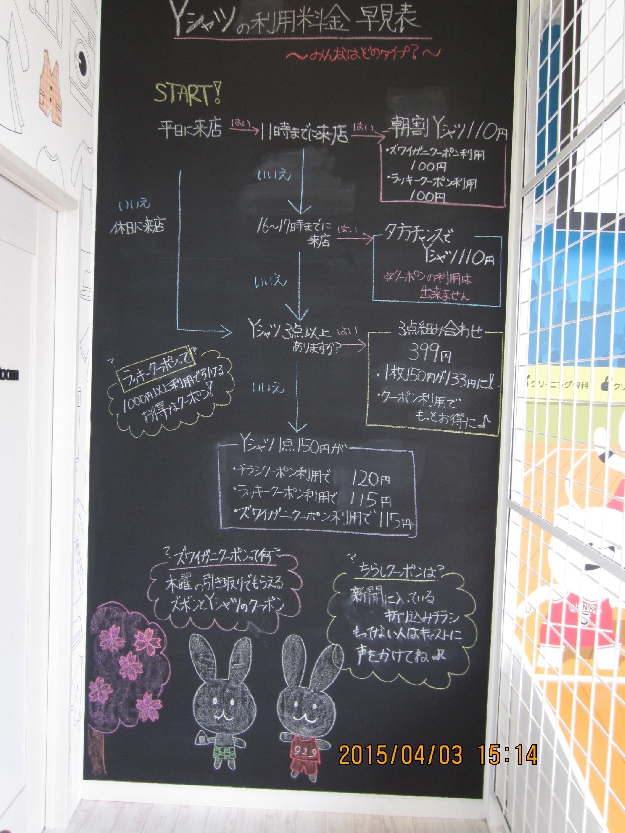 Yシャツの利用料金 早見表
～みんなはどのタイプ?～
START!
平日に来店
はい
11時までに来店
はい
朝割Yシャツ110円
・ズワイガニクーポン利用
100円
・ラッキークーポン利用
100円
いいえ
休日に来店
いいえ
16～17時までに
来店
はい
夕方チャンスで
Yシャツ110円
※クーポンの利用は
出来ません
いいえ
Yシャツ3点以上
ありますか?
はい
3点組み合わせ
399円
・1枚150円が133円に!!
・クーポン利用で
もっとお得に♪
ラッキークーポンって?
1000円以上利用で引ける
お得なクーポン!
いいえ
Yシャツ1点150円が
・チラシクーポン利用で 120円
・ラッキークーポン利用で 115円
・ズワイガニクーポン利用で115円
ズワイガニクーポンって何?
木曜の引き取りでもらえる
ズボンとYシャツのクーポン
ちらしクーポンは?
新聞に入っている
折り込みチラシ
もってない人はキャストに
声をかけてね♪
939
クリーニング
2015/04/03 15:14